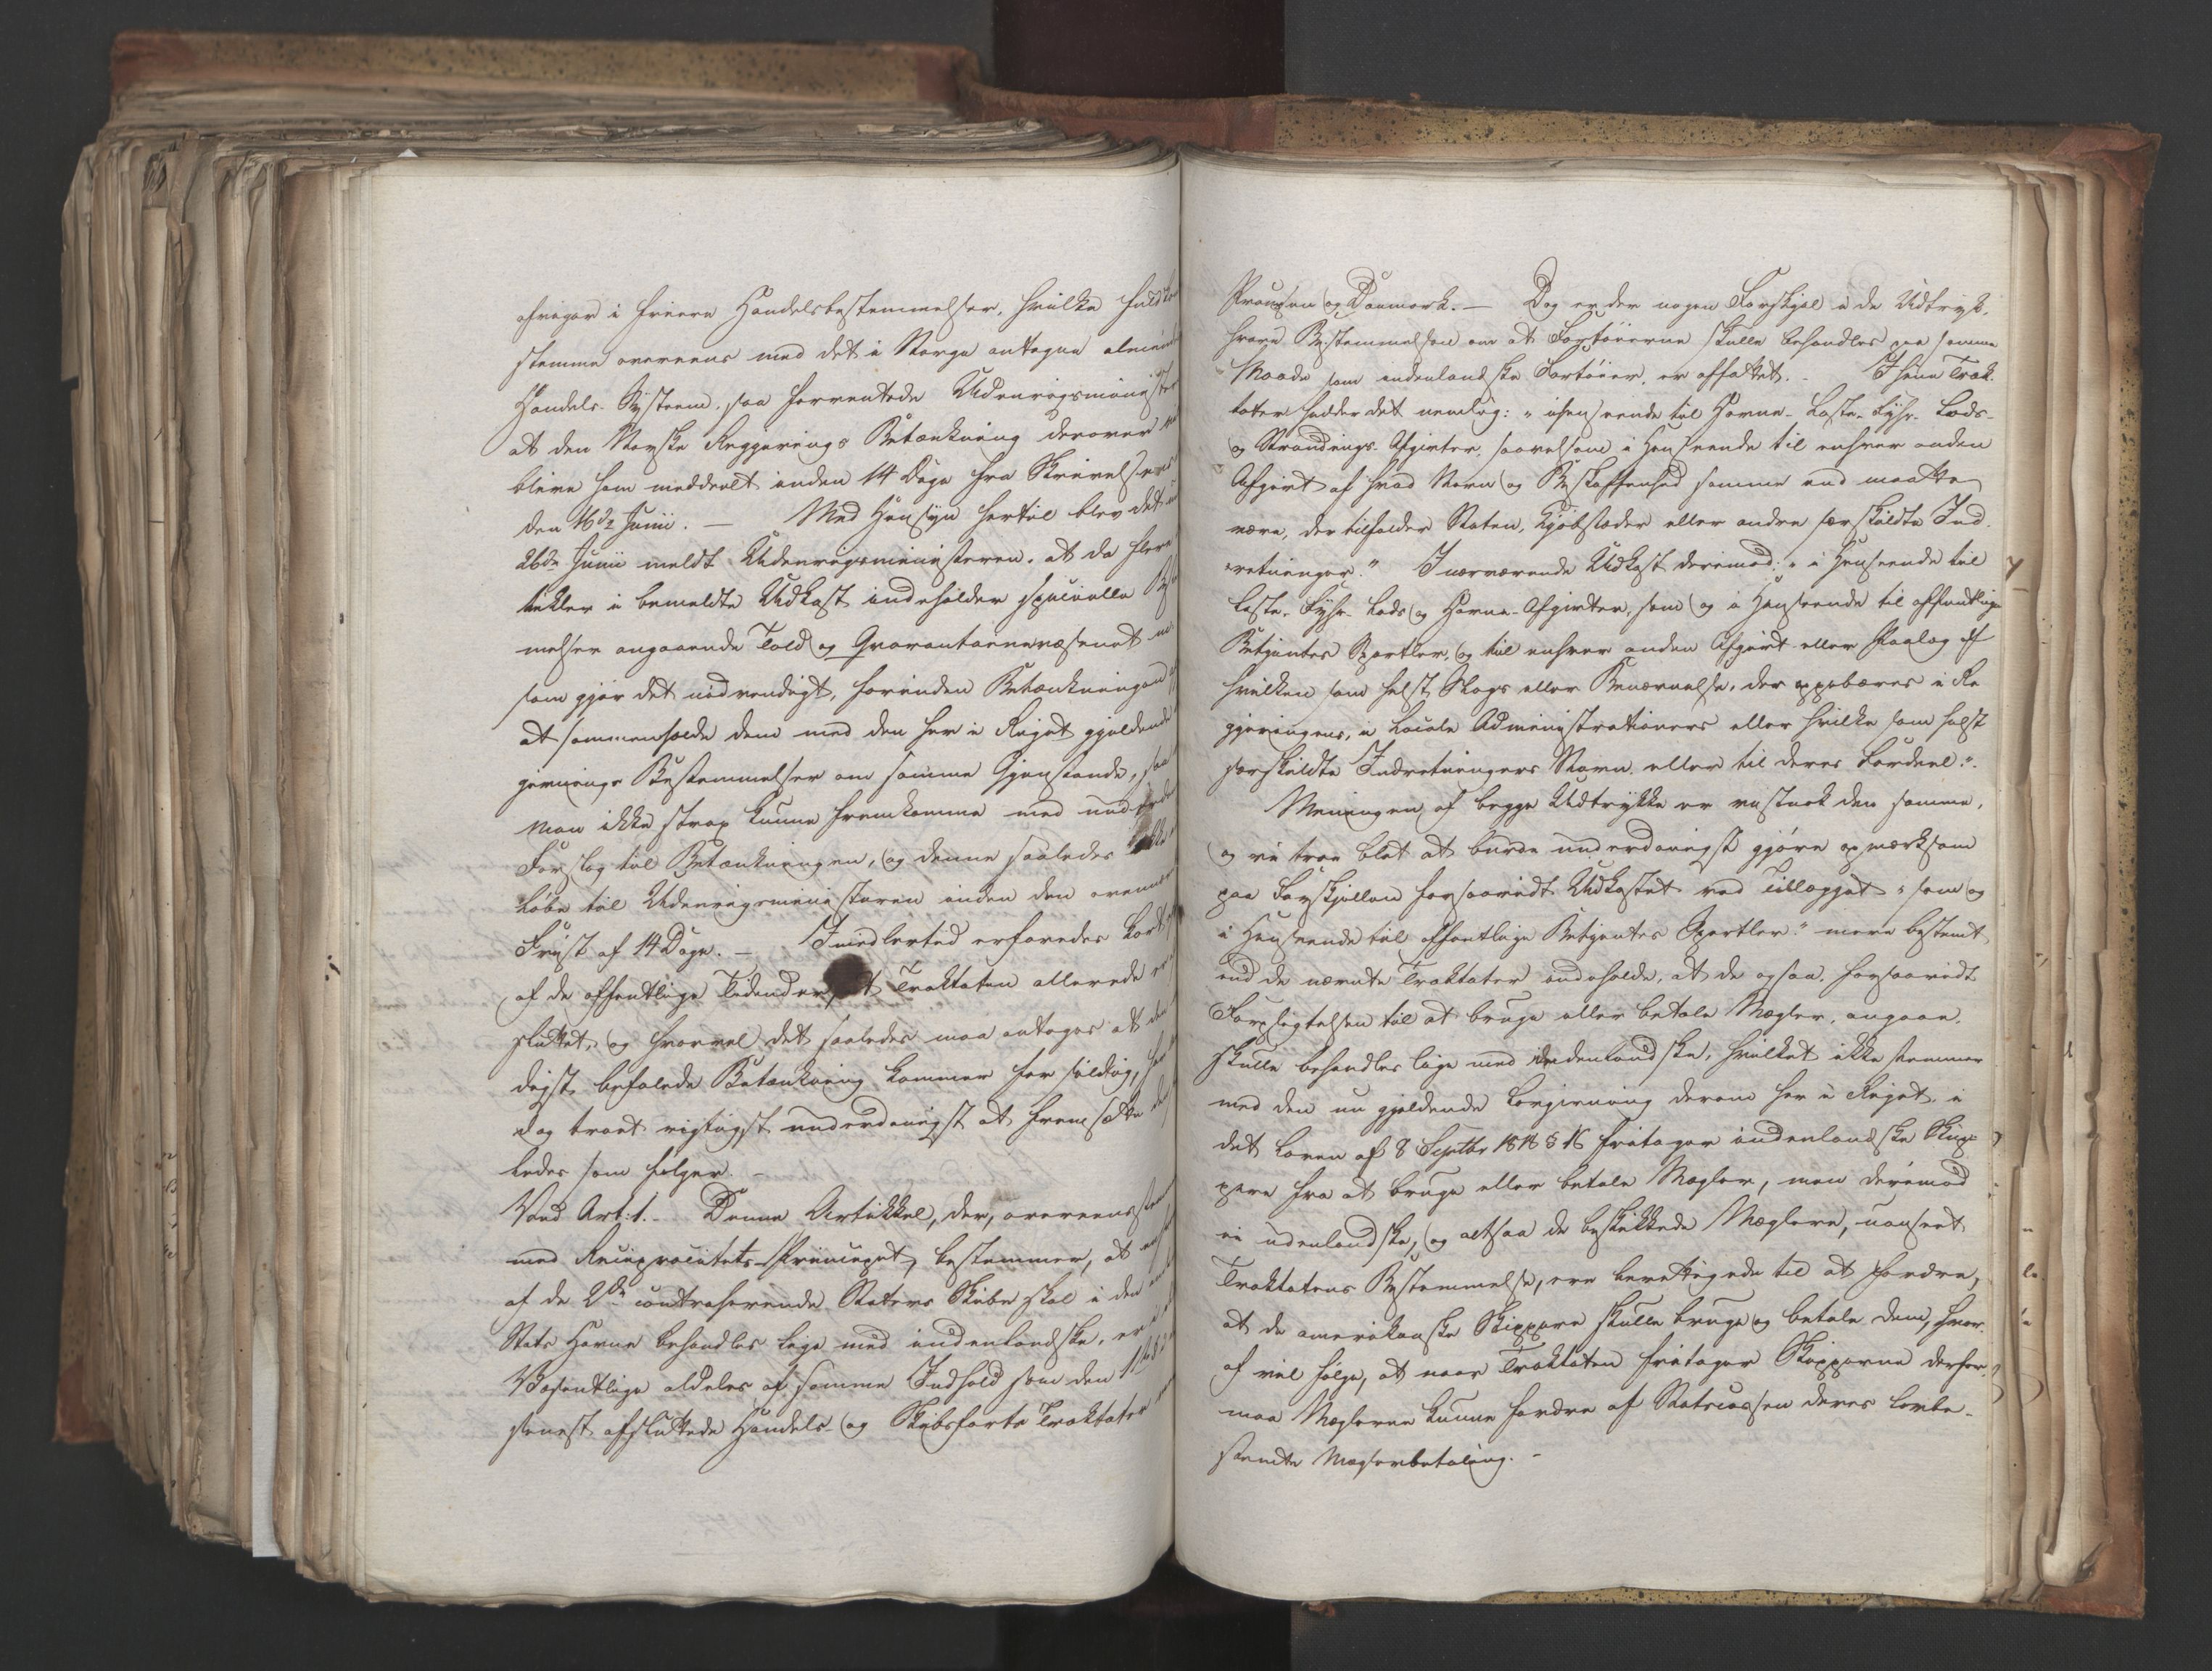 afviger i friere Handelsbestemmelser, hvilke fuld
stemme overeens med det i Norge antagne almind
Handels-System, saa forventede Udenrigsminist
at den Norske Regjerings Betænkning derover
blive ham meddeelt inden 14 Dage fra Skrivelsens
den 16de Junii. — Med Hensyn hertil blev det
26de Junii meldt Udenrigsministeren, at da flere
tikler i bemeldte Udkast indeholder specielle Be
melser angaaende Told og Qvarantainevæsenet
som gjør det nødvendigt, forinden Betænkningen
at sammenholde dem med den her i Riget gjeldende
givnings Bestemmelser om samme Gjenstande, saa
man ikke strax kunne fremkomme med underd
Forslag til Betænkningen, og denne saaledes
løbe til Udenrigsministeren inden den ovennæ
Frist af 14 Dage. — Imidlertid erfaredes kort
af de offentlige Tidender, at Traktaten allerede
sluttet, og hvorvel det saaledes maa antages at den
digst befalede Betænkning kommer for sildig, har
dog troet rigtigst underdanigst at fremsætte den
ledes som følger. —
Ved Art: 1. Denne Artikkel, der, overeensstem
med Reciprocitets-Princippet, bestemmer, at en
af de 2de contraherende Staters Skibe skal i den
Stats Havne behandles lige med indenlandske, er i
Væsentlige aldeles af samme Indhold som den 1ste
senest afsluttede Handels- og Skibsfarts Traktater
Preussen og Danmark. — Dog er der nogen Forskjel i de Udtryk,
hvori Bestemmelsen om at Fartøierne skulle behandles paa samme
Maade som indenlandske Fartøier, er affattet. I hine Trak-
tater hedder det nemlig: „i Henseende til Havne- Laste- Fyhr- Lods-
og Strandings-Afgivter, saavelsom i Henseende til enhver anden
Afgivt af hvad Navn og Beskaffenhed samme end maatte
være, der tilfalder Staten, Kjøbstæder eller andre særskildte Ind-
retninger." I nærværende Udkast derimod: „i Henseende til
Laste- Fyhr- Lods og Havne-Afgivter, som og i Henseende til offentlige
Betjentes Sportler, og til enhver anden Afgivt eller Paalag af
hvilken som helst Slags eller Benævnelse, der oppebæres i Re
gjeringens, i Locale Administrationers eller hvilke som helst
særskildte Indretningers Navn eller til deres Fordeel".
Meningen af begge Udtrykke er vistnok den samme,
og vi troe blot at burde underdanigst gjøre opmærksom
paa Forskjellen forsaavidt Udkastet ved Tillægget „som og
i Henseende til offentlige Betjentes Sportler" mere bestemt
end de nævnte Traktater indeholde, at de ogsaa, forsaavidt
Forpligtelsen til at bruge eller betale Mægler, angaae,
skulle behandles lige med indenlandske, hvilket ikke stemmer
med den nu gjeldende Lovgivning derom her i Riget, i
det Loven af 8 Septbr 1818 § 16 fritager indenlandske Skip-
pere fra at bruge eller betale Mægler, men derimod
ei udenlandske, og altsaa de beskikkede Mæglere, uanseet
Traktatens Bestemmelse, ere berettigede til at fordre,
at de amerikanske Skippere skulle bruge og betale dem, hvor-
af vil følge, at naar Traktaten fritager Skipperne derfor,
maa Mæglerne kunne fordre af Statscassen deres lovbe-
stemte Mæglerbetaling. —